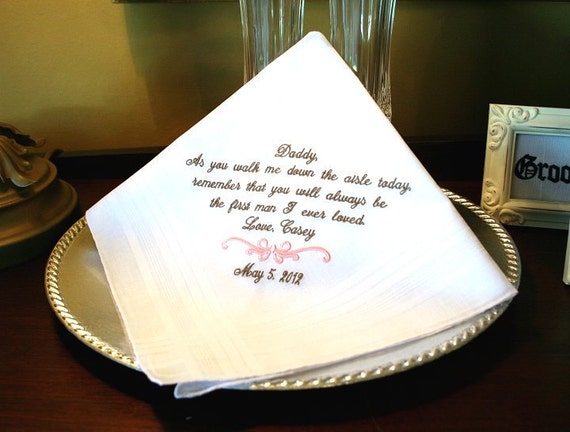 Daddy,
As you walk me down the aisle today,
remember that you will always be
the first man I ever loved.
Love, Casey
May 5, 2012